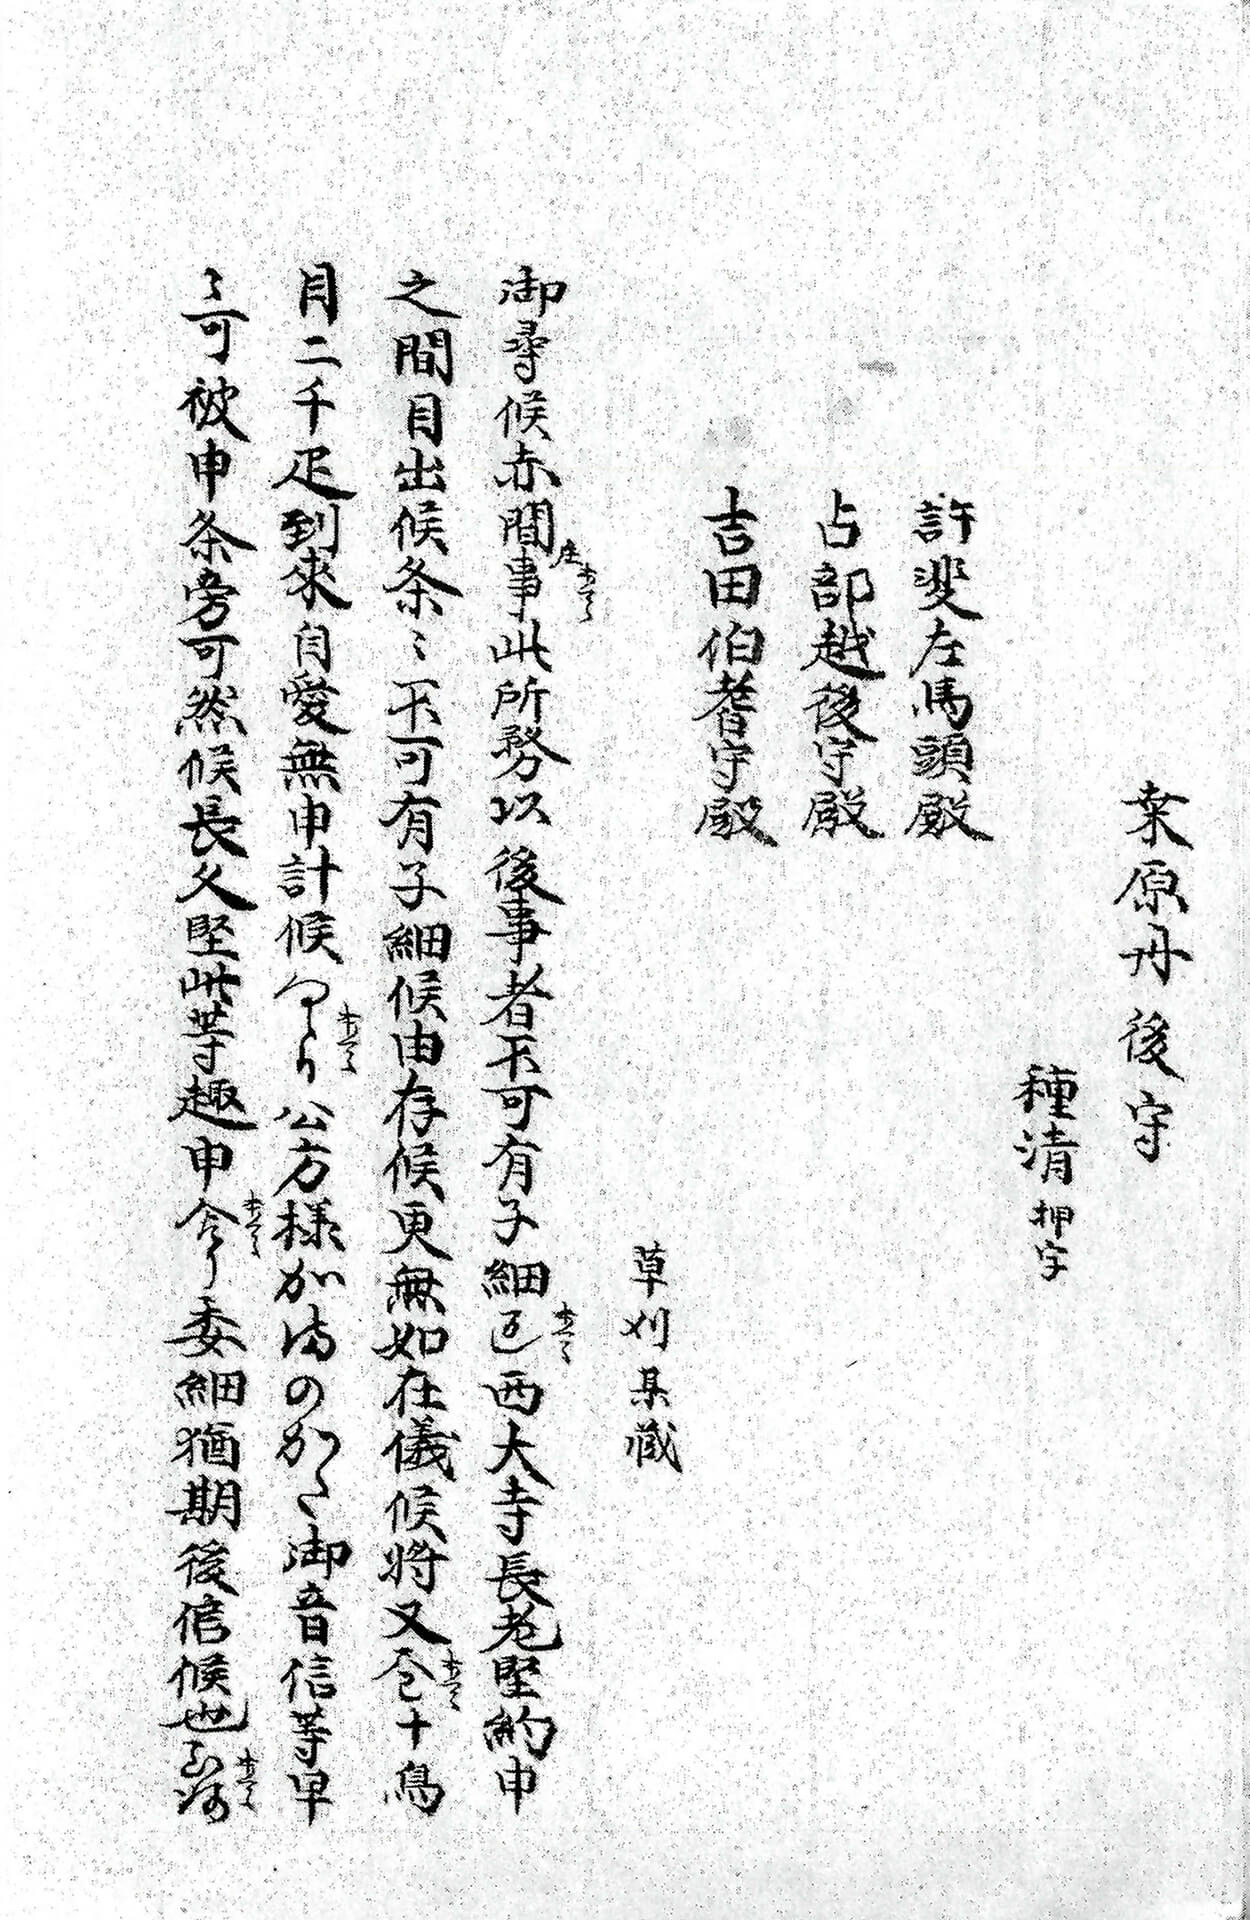 桒原丹後守
種清押字
許斐左馬頭殿
占部越後守殿
吉田伯耆守殿
草刈某蔵
御尋候赤間庄事此所務以後事者不可有子細西大寺長老堅約申
之間目出候条〻不可有子細候由存候更無如在儀候将又十鳥
目二千疋到來自愛無申計候公方様かまのかた御音信等早
〻可被申条旁可然候長久堅此等趣申含委細猶期後信候也